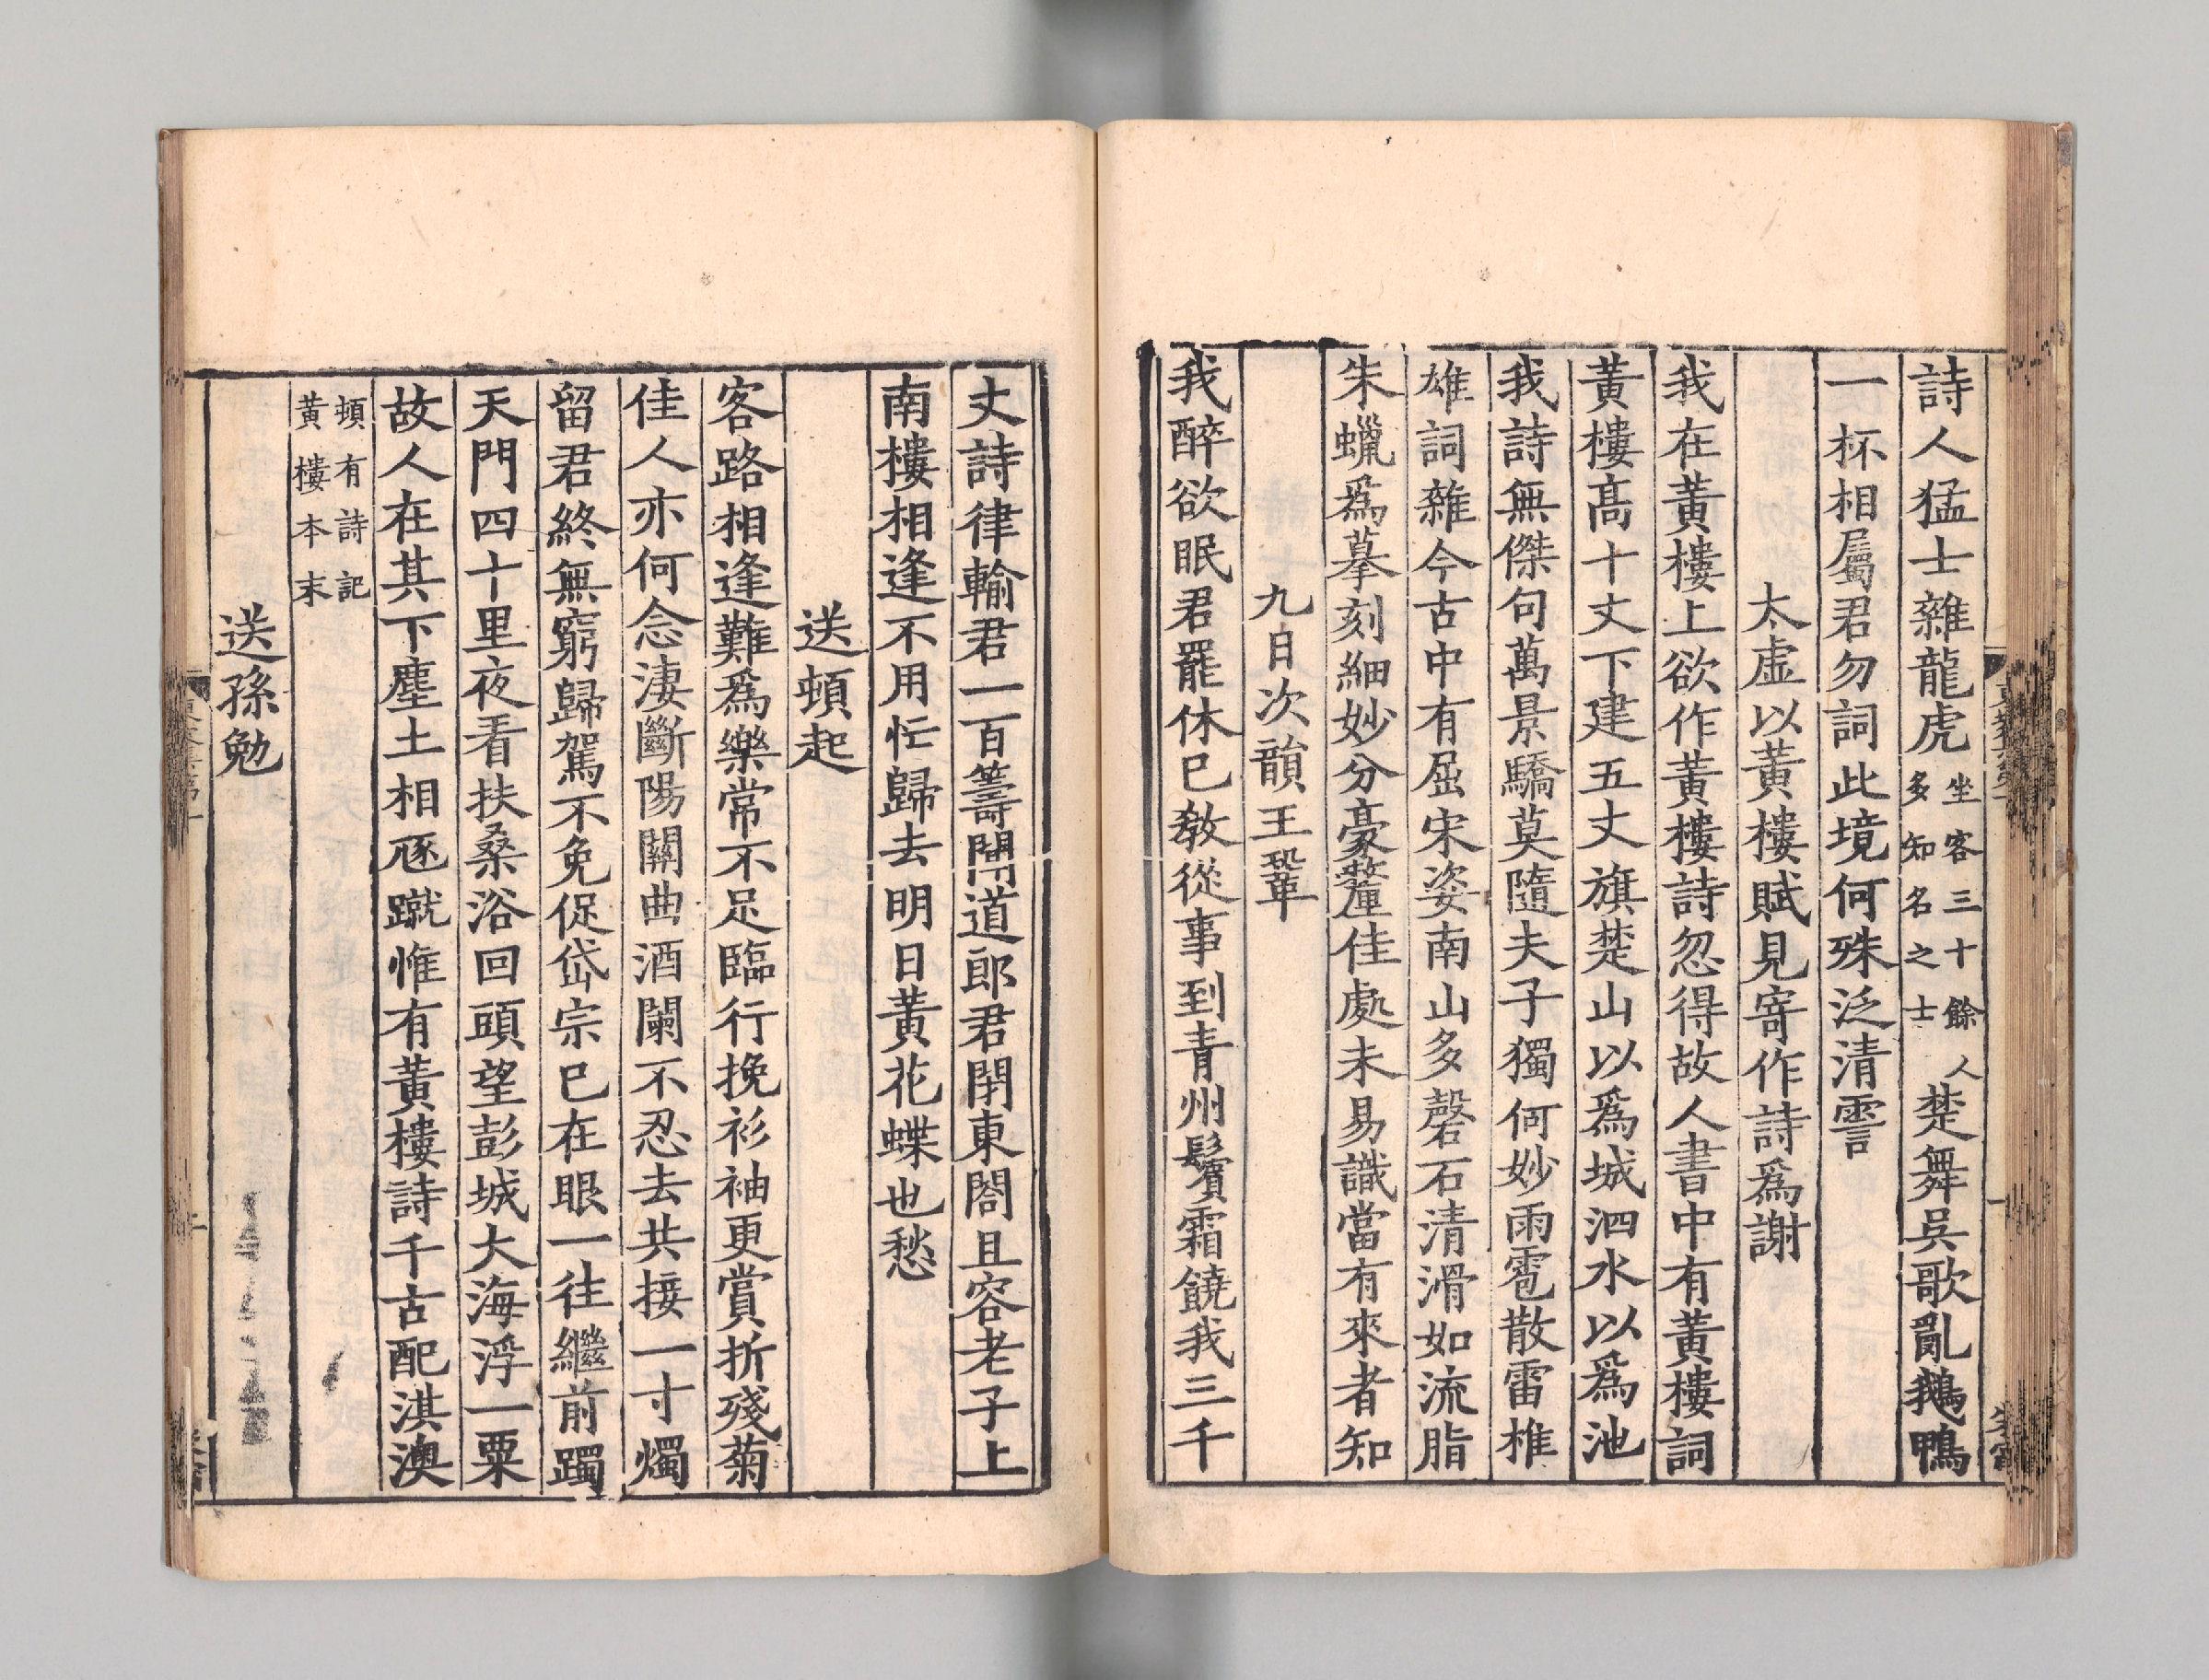 詩人猛士雜龍虎坐客三十餘人多知名之士楚舞吳歌亂鵝鴨
一杯相屬君勿詞此境何殊泛清霅
太虛以黃樓賦見寄作詩爲謝
我在黃樓上欲作黃樓詩忽得故人書中有黃樓詞
黃樓髙十丈下建五丈旗楚山以爲城泗水以爲池
我詩無傑句萬景驕莫隨夫子獨何妙雨雹散雷椎
雄詞雜今古中有屈宋姿南山多磬石清滑如流脂
朱蠟爲摹刻細妙分豪釐佳處未易識當有來者知
九日次韻王鞏
我醉欲眠君罷休已教從事到青州鬢霜饒我三千
丈詩律輸君一百籌聞道郎君閉東閤且容老子上
南樓相逢不用忙歸去明日黃花蝶也愁
送頓起
客路相逢難爲樂常不足臨行挽衫袖更賞折殘菊
佳人亦何念淒斷陽關曲酒闌不忍去共接一寸燭
留君終無窮歸駕不免促岱宗已在眼一往繼前躅
天門四十里夜看扶桑浴回頭望彭城大海浮一粟
故人在其下塵土相豗蹴惟有黃樓詩千古配淇澳
頓有詩記
黃樓本末
送孫勉